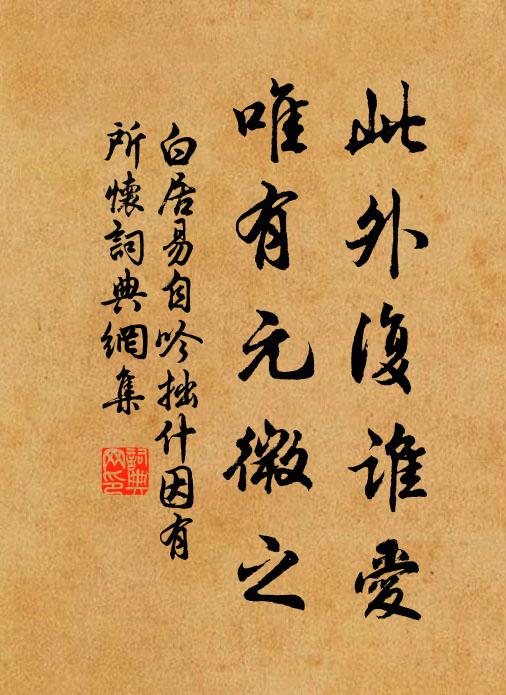 此外復誰愛
唯有元微之
白居易自吟拙什因有
所懷詞典網集
詞典網印